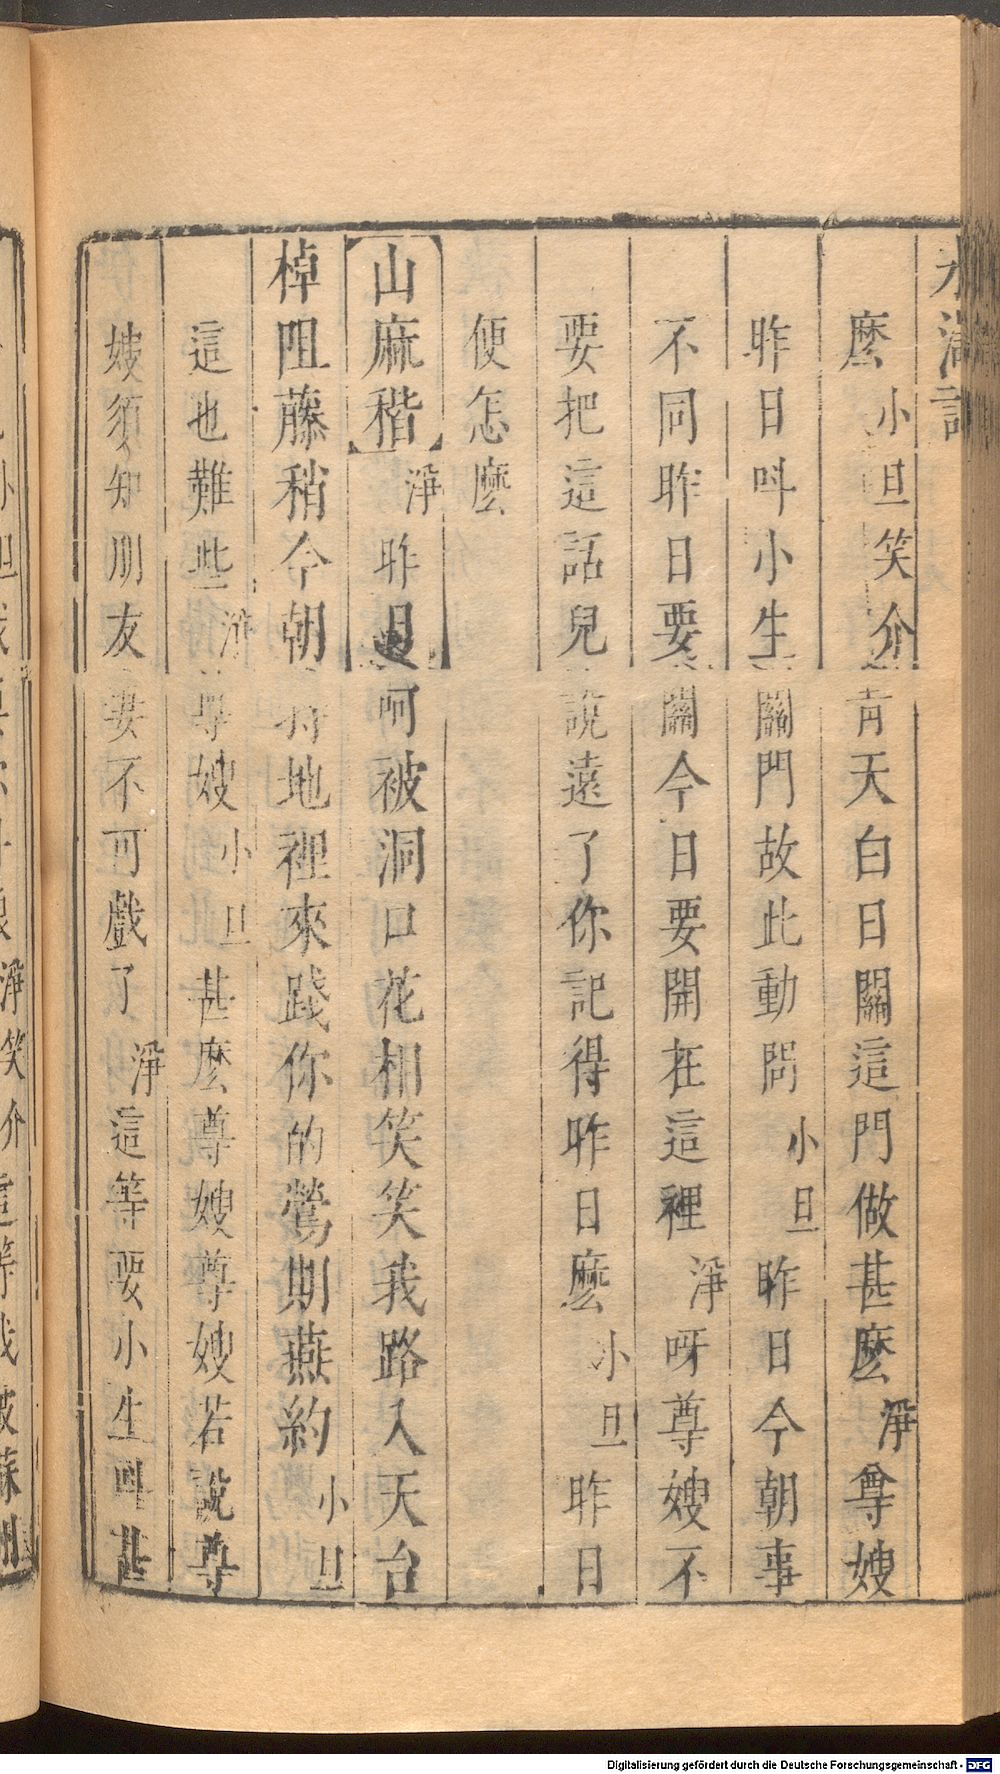 水滸記
麼小旦笑介青天白日關這門做甚麽淨尊嫂
昨日呌小生關門故此動問小旦昨日今朝事
不同昨日要關今日要開在這裡淨呀尊嫂不
要把這話兒說遠了你記得昨日麽小旦昨日
便怎麽
山麻稭淨昨日呵被洞口花相笑笑我路入天台
棹阻藤稍今朝特地裡來踐你的鶯期燕約小旦
這也難些淨尊嫂小旦甚麽尊嫂尊嫂若說尊
嫂須知朋友妻不可戲了淨這等要小生呌甚
淨笑介這等我被蘇州
Digitalisierung gefördert durch die Deutsche Forschungsgemeinschaft - DFG